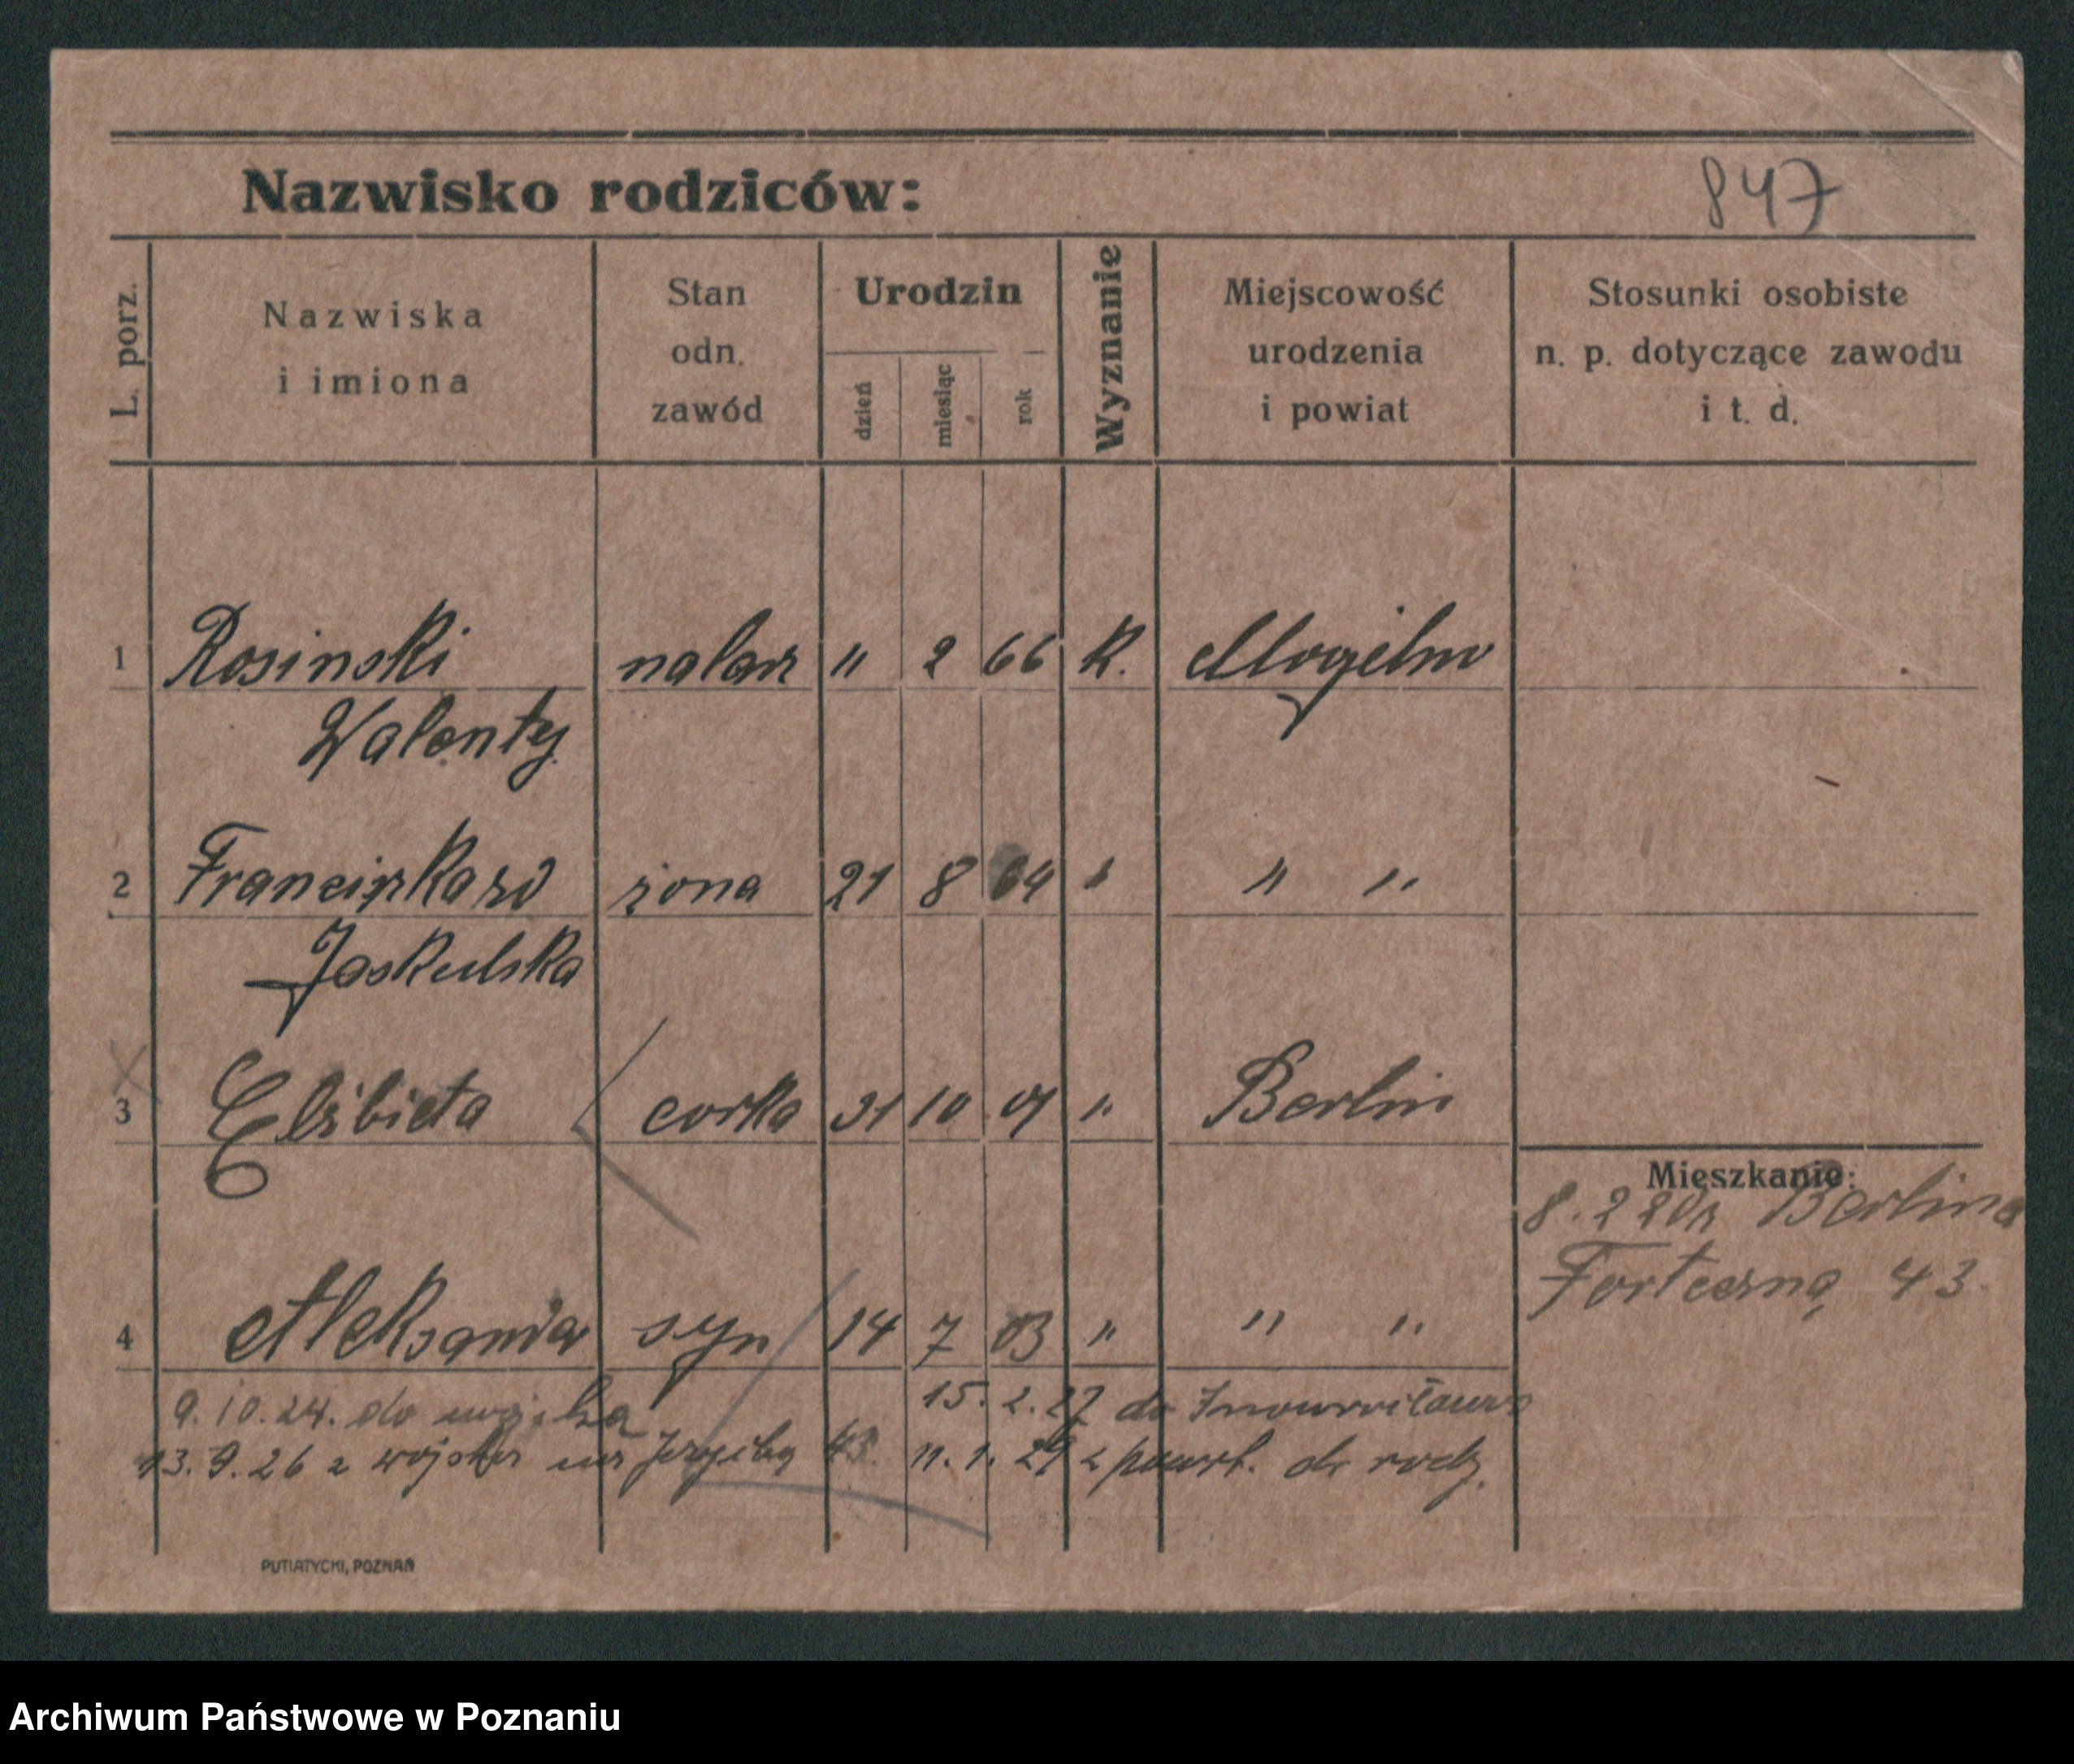 Nazwisko rodziców:
847
L. porz.
Nazwiska
i imiona
Stan
odn.
zawód
Urodzin
dzień
miesiąc
rok
Wyznanie
Miejscowość
urodzenia
i powiat
Stosunki osobiste
n. p. dotyczące zawodu
i t. d.
1 Rosinski malarz 11 2 66 K. Mogilno
Walenty
2 Franciszka zd żona 21 8 64 " " "
Jaskulska
3 Elżbieta corka 31 10 01 " Berlin
Mieszkanie:
8. 2 20 z Berlina
Forteczna 43
4 Aleksander syn 14 7 03 " " "
9.10.24. do wojska 15. 2. 27 do Inowrocławia
13.9.26 z wojska 43. 11. 1. 29 z powrt. do rodz.
PUTIATYCKI, POZNAŃ
Archiwum Państwowe w Poznaniu